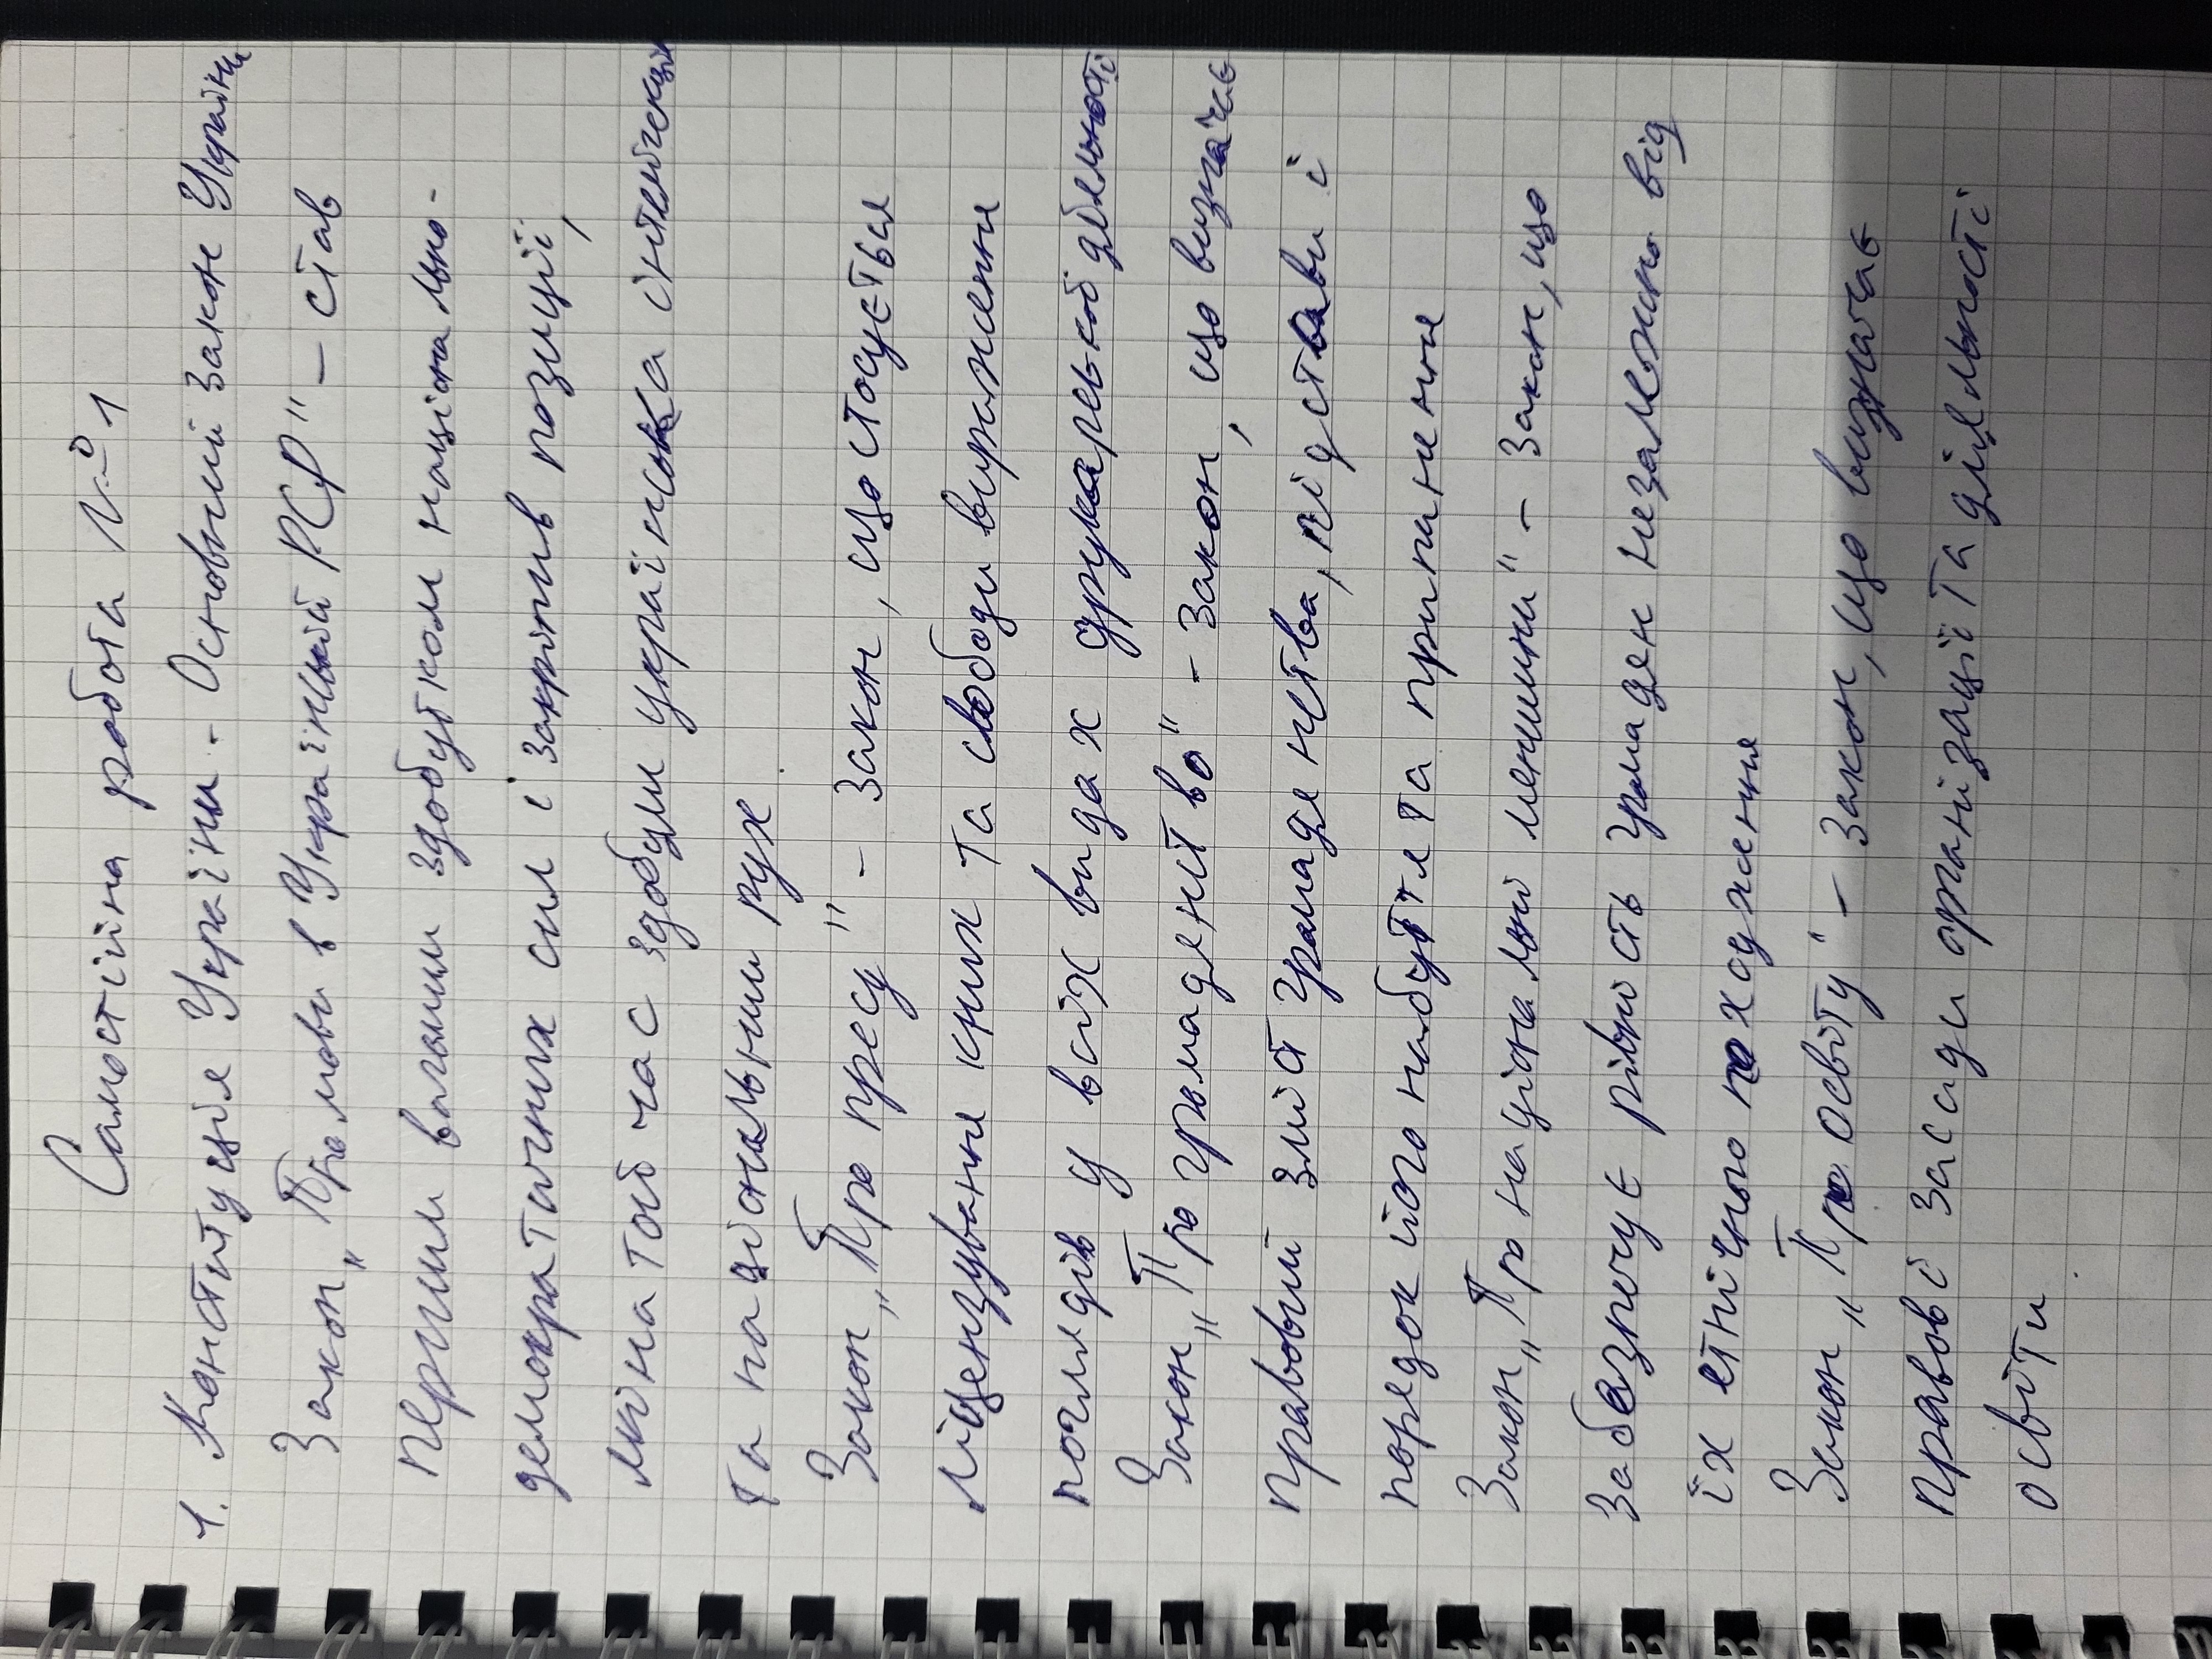 Самостійна робота №1
1. Конституція України - Основний Закон України
Закон „Про мови в Українській РСР" - став
першим вагомим здобутком національно-
демократичних сил і закріпив позиції,
які на той час здобули українська інтелігенція
та національний рух.
Закон „Про пресу" - Закон, що стосується
ліцензування книг та свободи вираження
поглядів у всіх видах друкарської діяльності
Закон „Про громадянство" - Закон, що визначає
правовий зміст громадянства, підстави і
порядок його набуття та припинення
Закон „Про національні меншини" - Закон, що
забезпечує рівність громадян незалежно від
їх етнічного походження
Закон „Про освіту" - Закон, що визначає
правові засади організації та діяльності
освіти.